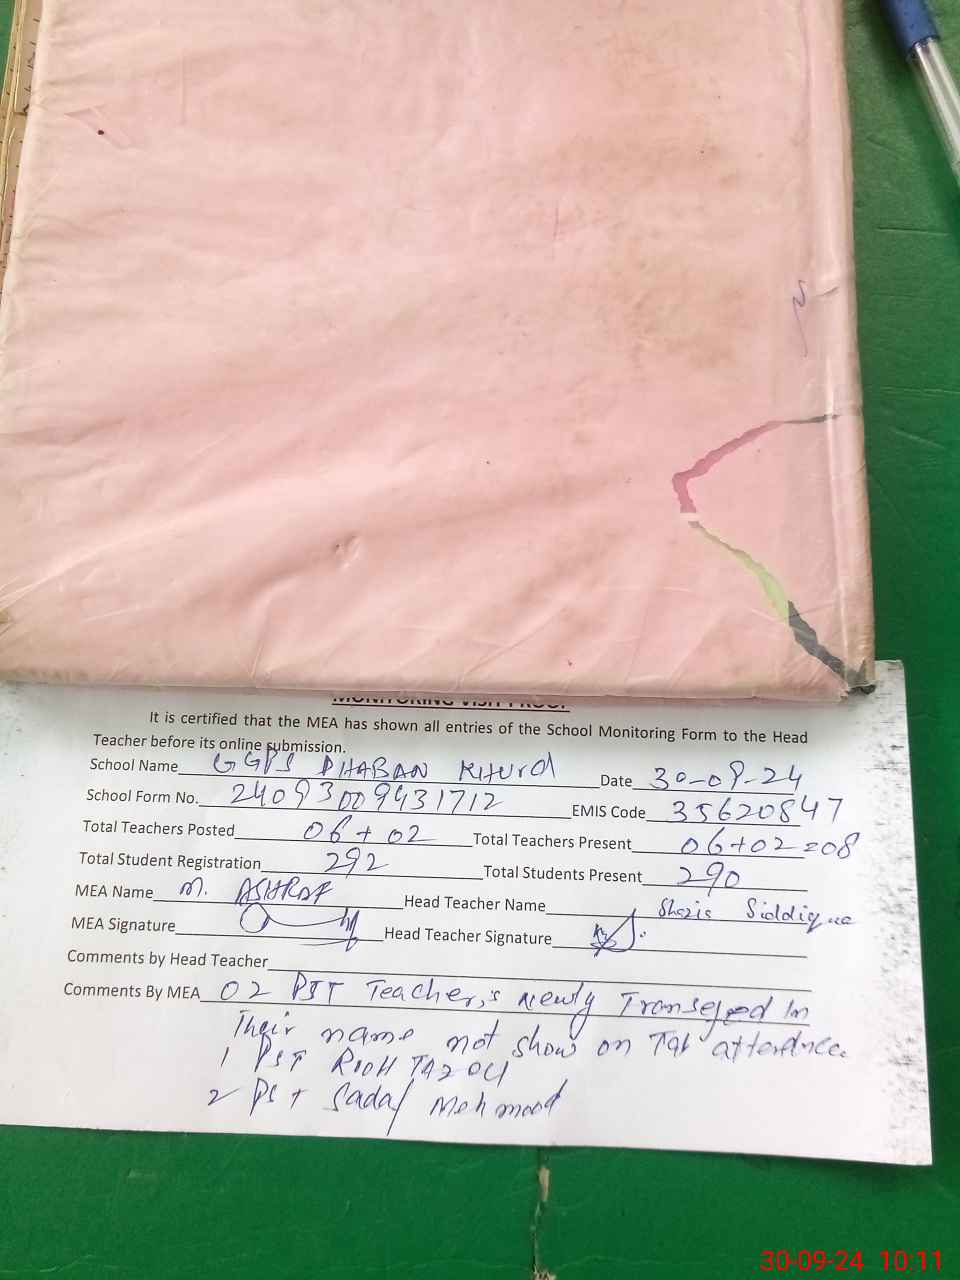 MONITORING VISIT PROOF
It is certified that the MEA has shown all entries of the School Monitoring Form to the Head
Teacher before its online submission.
School Name GGPS DHABAN KHURD Date 30-09-24
School Form No. 240930009431712 EMIS Code 35620847
Total Teachers Posted 06+02 Total Teachers Present 06+02=08
Total Student Registration 292 Total Students Present 290
MEA Name M. ASHRAF Head Teacher Name Shazia Siddiqua
MEA Signature Head Teacher Signature
Comments by Head Teacher
Comments By MEA 02 PST Teacher,s newly Transefed In
Their name not show on Tab attendnce.
1 PST
2 PST Sadaf Mehmood
30-09-24 10:11